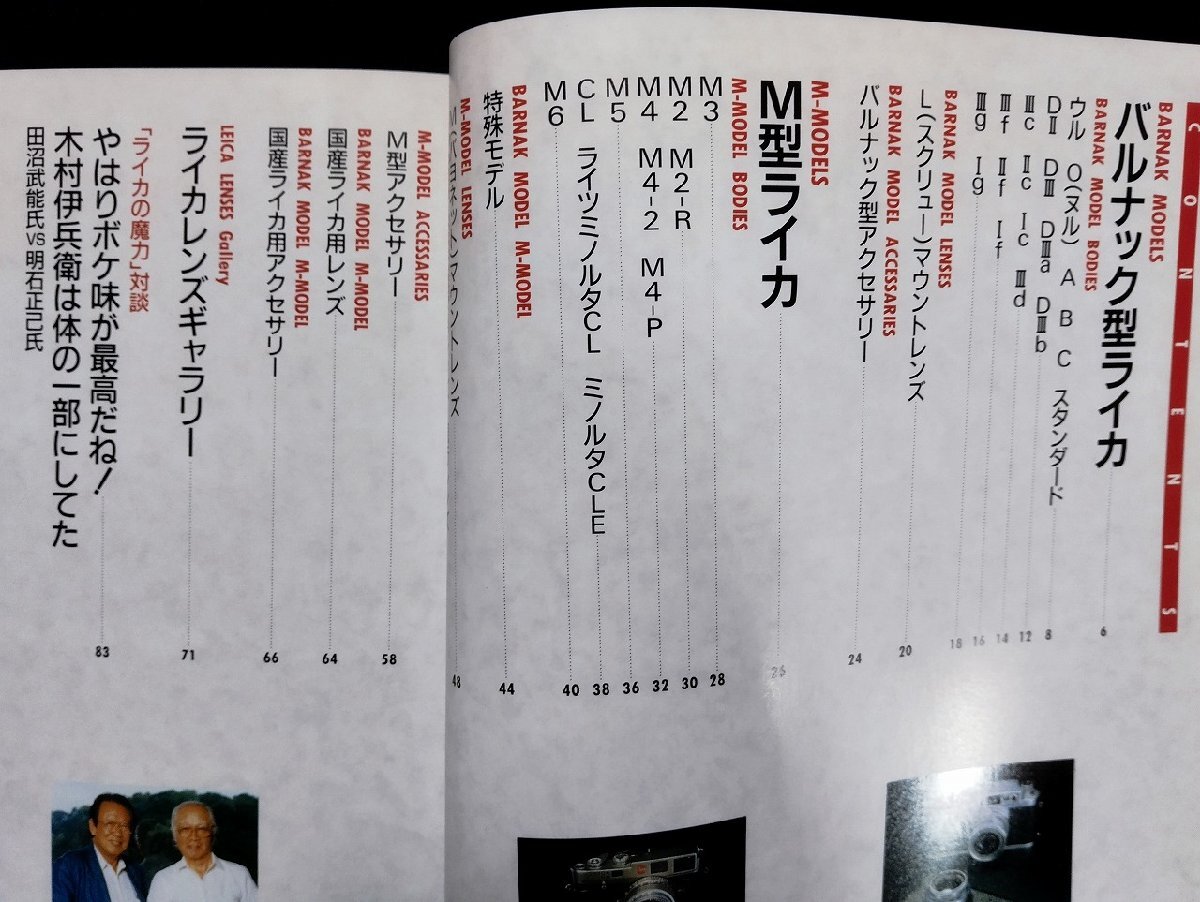 CONTENTS
BARNAK MODELS
バルナック型ライカ 6
BARNAK MODEL BODIES
ウル O(ヌル) A B C スタンダード 8
DⅡ DⅢ DⅢa DⅢb 12
Ⅲc Ⅱc Ⅰc Ⅲd 14
Ⅲf Ⅱf Ⅰf 16
Ⅲg Ⅰg 18
BARNAK MODEL LENSES
L(スクリュー)マウントレンズ 20
BARNAK MODEL ACCESSARIES
バルナック型アクセサリー 24
M-MODELS
M型ライカ 26
M-MODEL BODIES
M3 28
M2 M2-R 30
M4 M4-2 M4-P 32
M5 36
CL ライツミノルタCL ミノルタCLE 38
M6 40
BARNAK MODEL M-MODEL
特殊モデル 44
M-MODEL LENSES
M(バヨネット)マウントレンズ 48
M-MODEL ACCESSARIES
M型アクセサリー 58
BARNAK MODEL M-MODEL
国産ライカ用レンズ 64
BARNAK MODEL M-MODEL
国産ライカ用アクセサリー 66
LEICA LENSES Gallery
ライカレンズギャラリー 71
「ライカの魔力」対談
やはりボケ味が最高だね! 83
木村伊兵衛は体の一部にしてた
田沼武能氏vs明石正巳氏